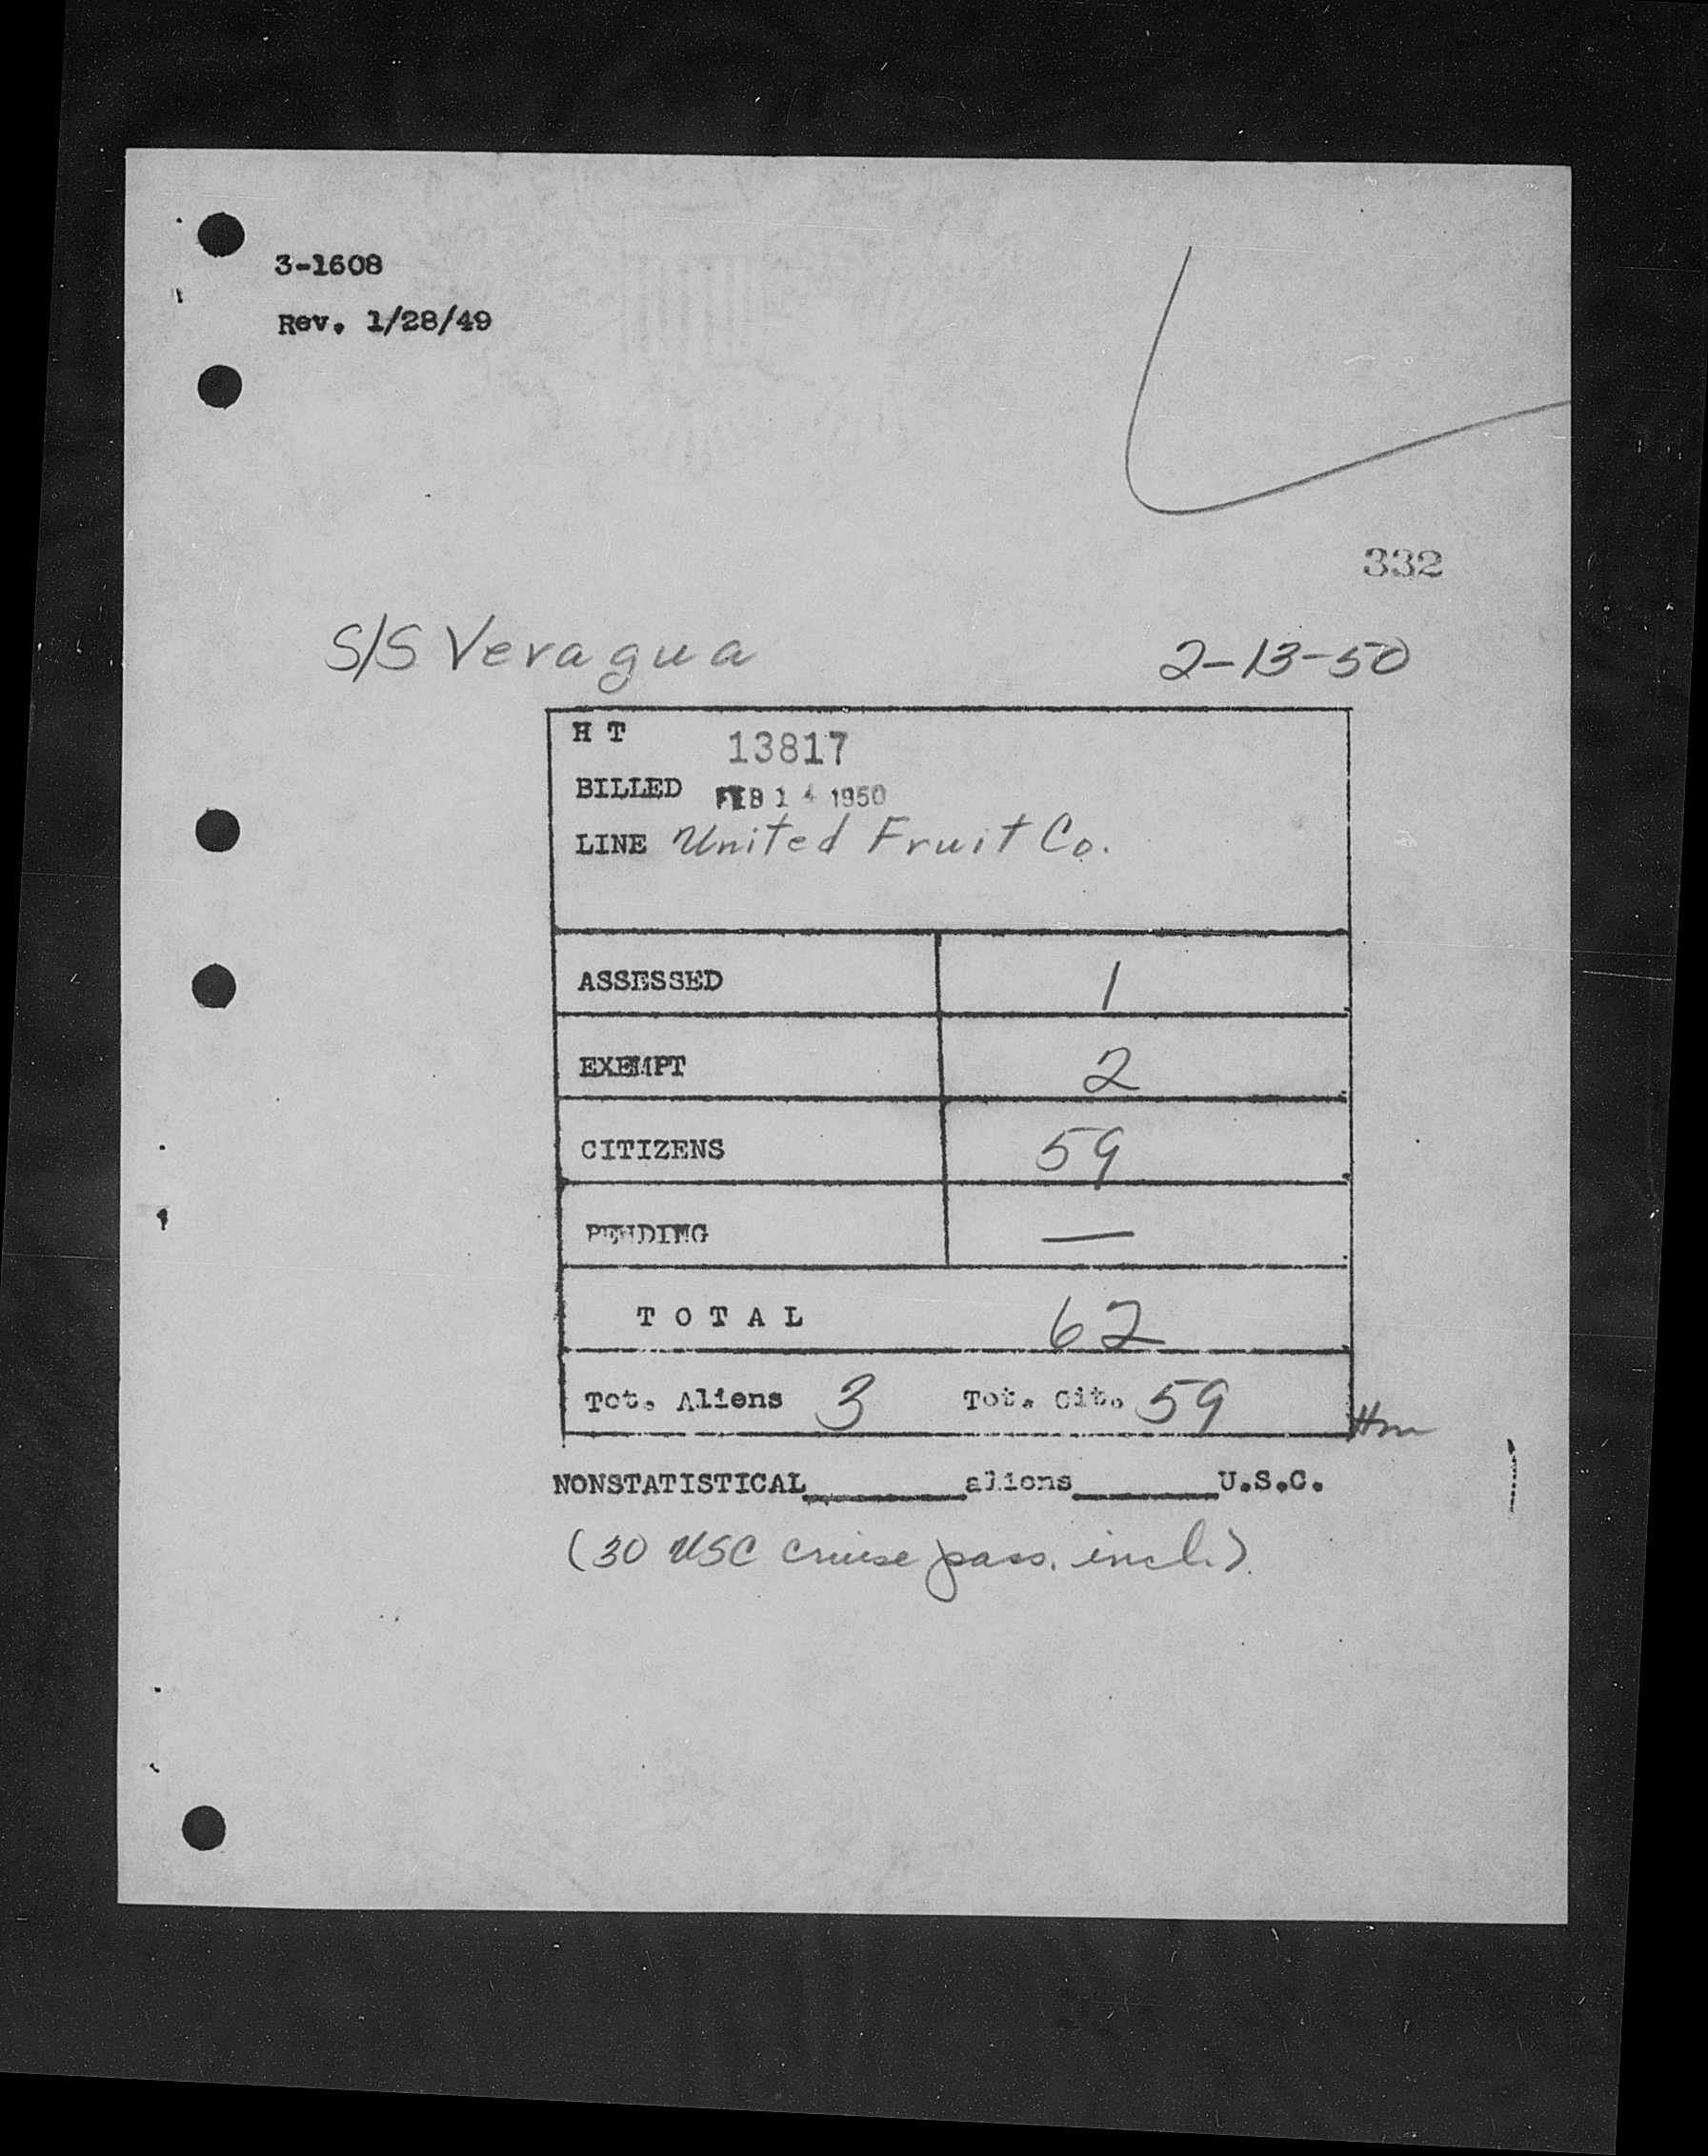 3-1608
Rev. 1/28/49
332
S/S Veragua 2-13-50
H T 13817
BILLED FEB 14 1950
LINE United Fruit Co.
ASSESSED 1
EXEMPT 2
CITIZENS 59
PENDING —
T O T A L 62
Tot. Aliens 3 Tot. Cit. 59
NONSTATISTICAL________aliens________U.S.C.
(30 USC cruise pass. incl.)